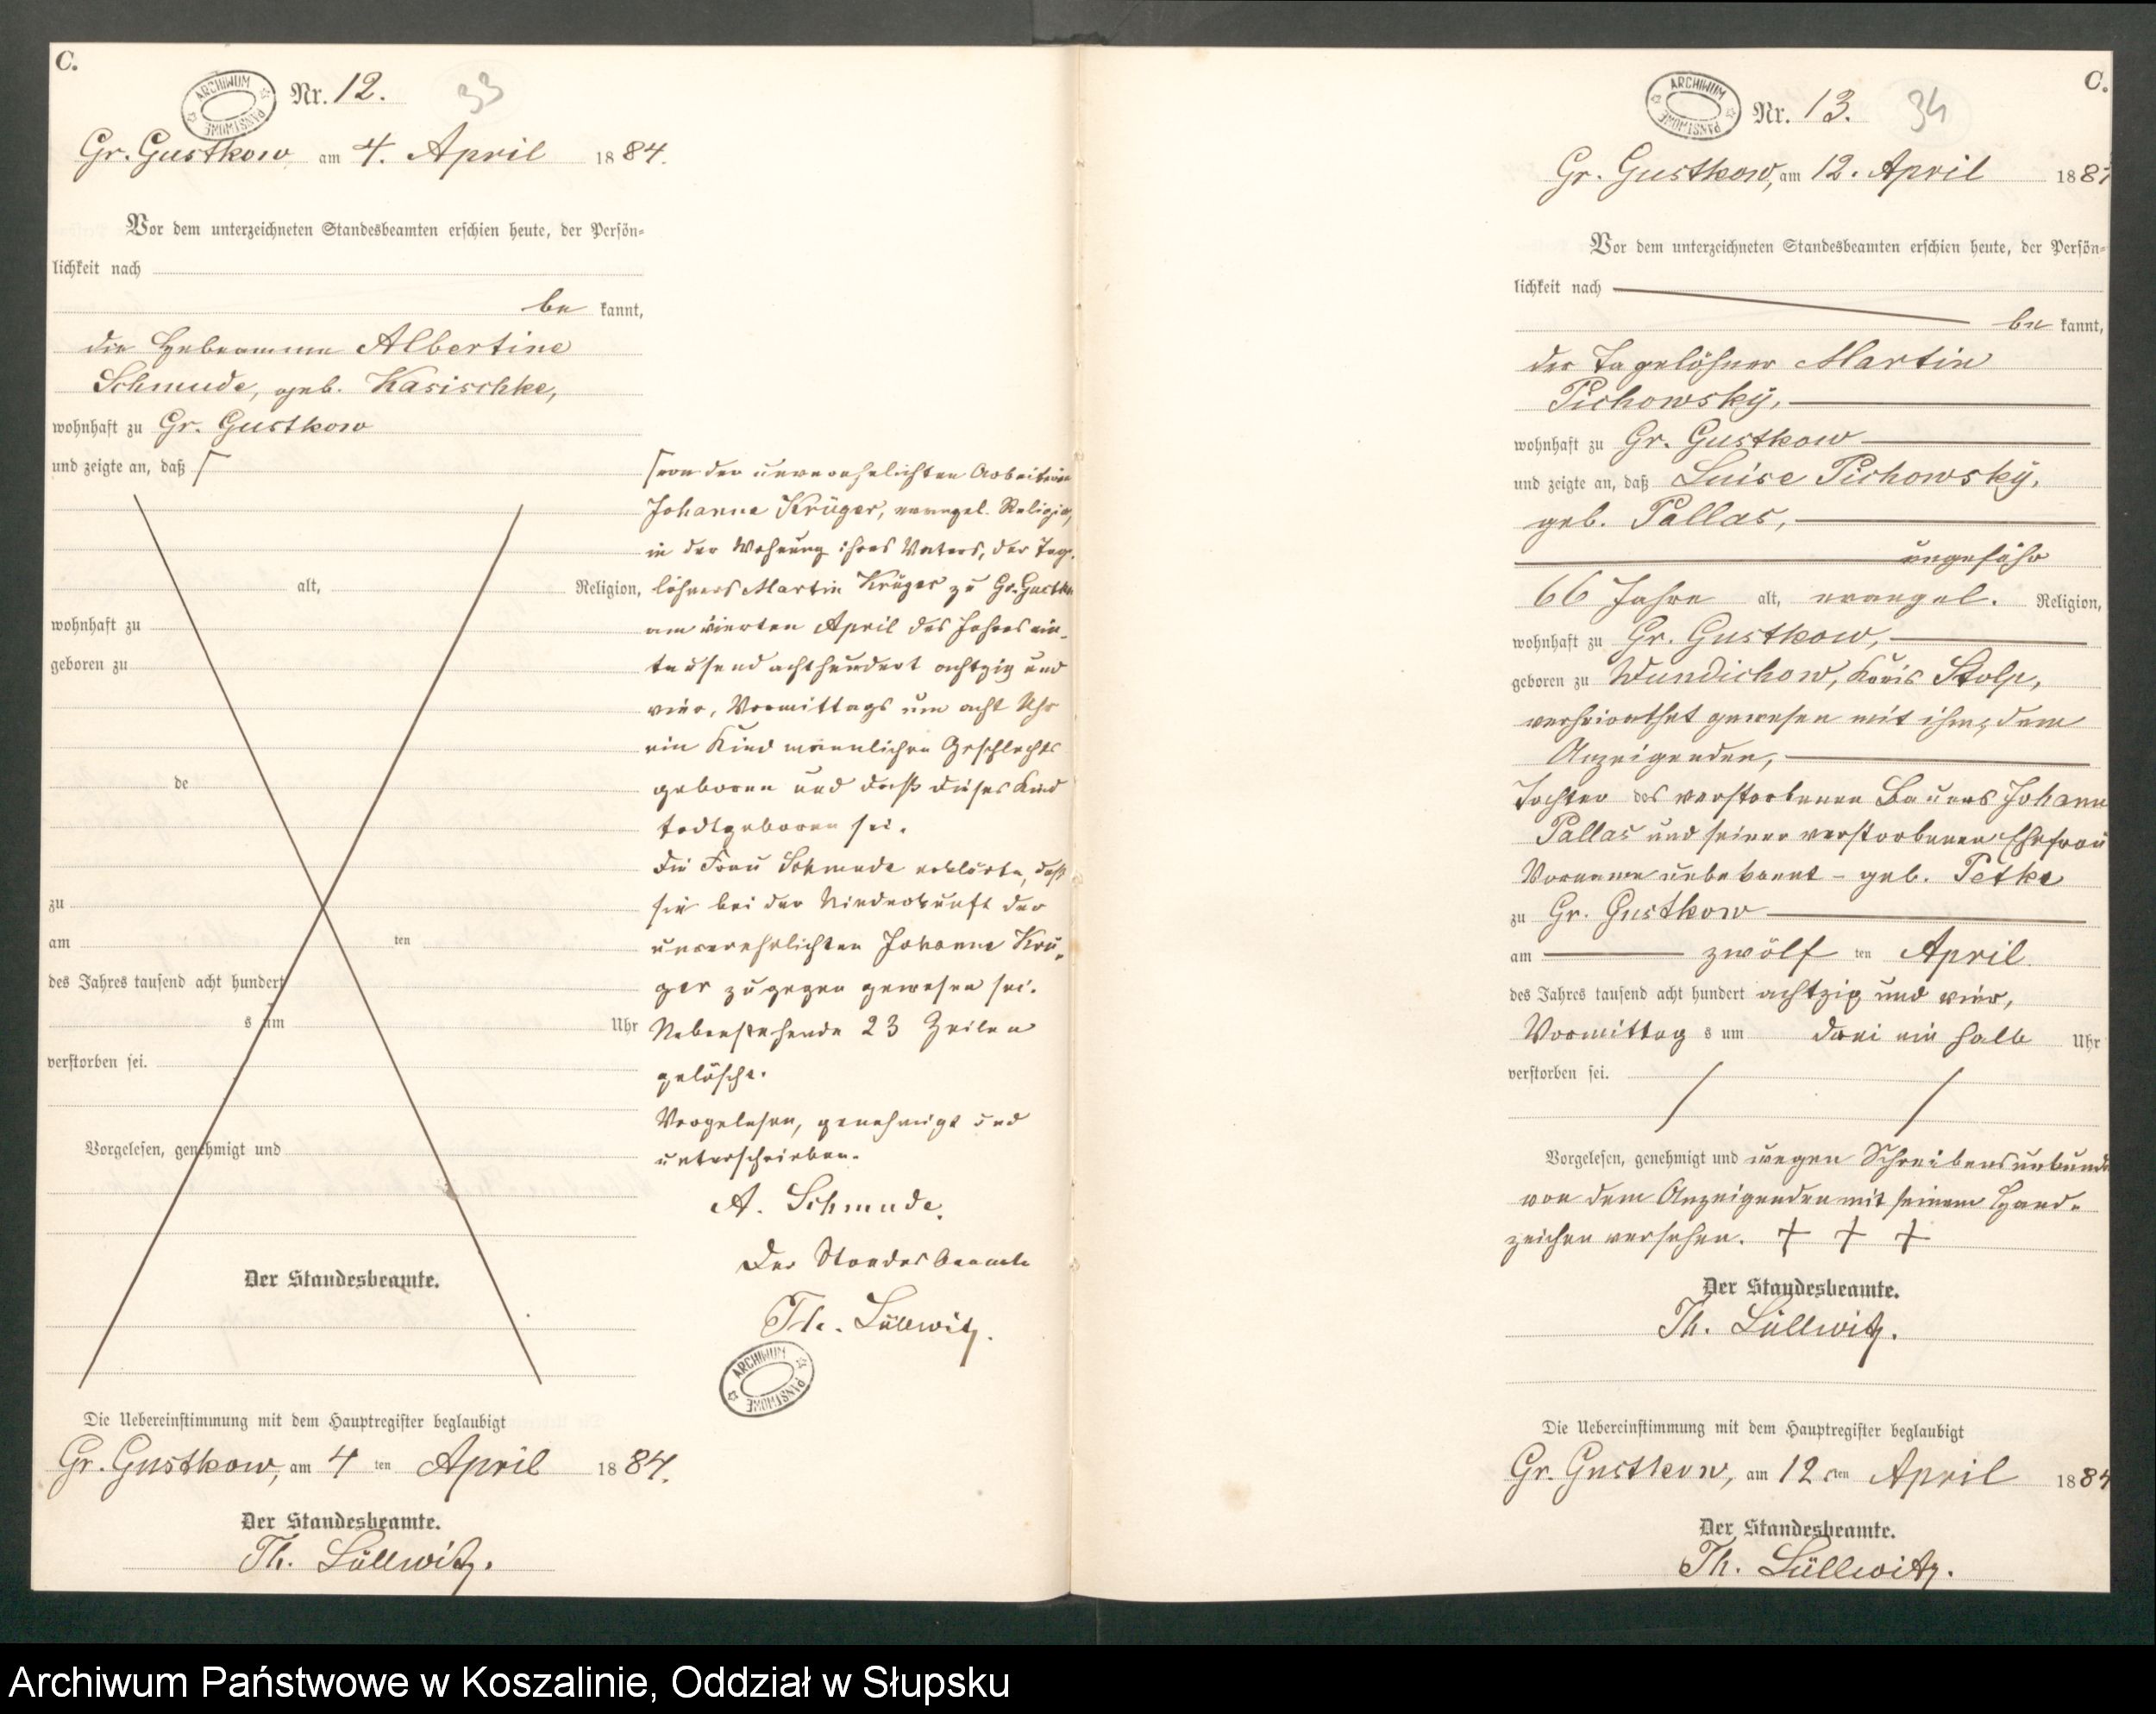 C.
ARCHIWUM PAŃSTWOWE
Nr. 12.
33
Gr. Gustkow, am 4. April 1884.
Vor dem unterzeichneten Standesbeamten erschien heute, der Persön-
lichkeit nach
be kannt,
die Hebeamme Albertine
Schmude, geb. Kasischke,
wohnhaft zu Gr. Gustkow
und zeigte an, daß
alt, Religion,
wohnhaft zu
geboren zu
de
zu
am ten
des Jahres tausend acht hundert
s um Uhr
verstorben sei.
Vorgelesen, genehmigt und
Der Standesbeamte.
von der unverehelichten Arbeiterin
Johanna Krüger, evangel. Religion,
in der Wohnung ihres Vaters, des Tage-
löhners Martin Krüger zu Gr. Gustkow
am vierten April des Jahres ein-
tausend achthundert achtzig und
vier, Vormittags um acht Uhr
ein Kind männlichen Geschlechts
geboren und daß dieses Kind
todtgeboren sei.
Die Frau Schmude erklärte, daß
sie bei der Niederkunft der
unverehelichten Johanna Krü-
ger zugegen gewesen sei.
Nebenstehende 23 Zeilen
gelöscht.
Vorgelesen, genehmigt und
unterschrieben.
A. Schmude.
Der Standesbeamte
Th. Lüllwitz.
ARCHIWUM PAŃSTWOWE
Die Uebereinstimmung mit dem Hauptregister beglaubigt
Gr. Gustkow, am 4 ten April 1884.
Der Standesbeamte.
Th. Lüllwitz.
C.
ARCHIWUM PAŃSTWOWE
Nr. 13.
34
Gr. Gustkow, am 12. April 1884
Vor dem unterzeichneten Standesbeamten erschien heute, der Persön-
lichkeit nach
be kannt,
der Tagelöhner Martin
Pichowsky,
wohnhaft zu Gr. Gustkow
und zeigte an, daß Luise Pichowsky,
geb. Pallas,
ungefähr
66 Jahre alt, evangel. Religion,
wohnhaft zu Gr. Gustkow,
geboren zu Wundichow, Kreis Stolp,
verheirathet gewesen mit ihm, dem
Anzeigenden,
Tochter des verstorbenen Bauers Johann
Pallas und seiner verstorbenen Ehefrau
Vorname unbekannt - geb. Petke
zu Gr. Gustkow
am zwölf ten April
des Jahres tausend acht hundert achtzig und vier,
Vormittag s um drei ein halb Uhr
verstorben sei.
Vorgelesen, genehmigt und wegen Schreibensunkunde
von dem Anzeigenden mit seinem Hand-
zeichen versehen. + + +
Der Standesbeamte.
Th. Lüllwitz.
Die Uebereinstimmung mit dem Hauptregister beglaubigt
Gr. Gustkow, am 12 ten April 1884
Der Standesbeamte.
Th. Lüllwitz.
Archiwum Państwowe w Koszalinie, Oddział w Słupsku